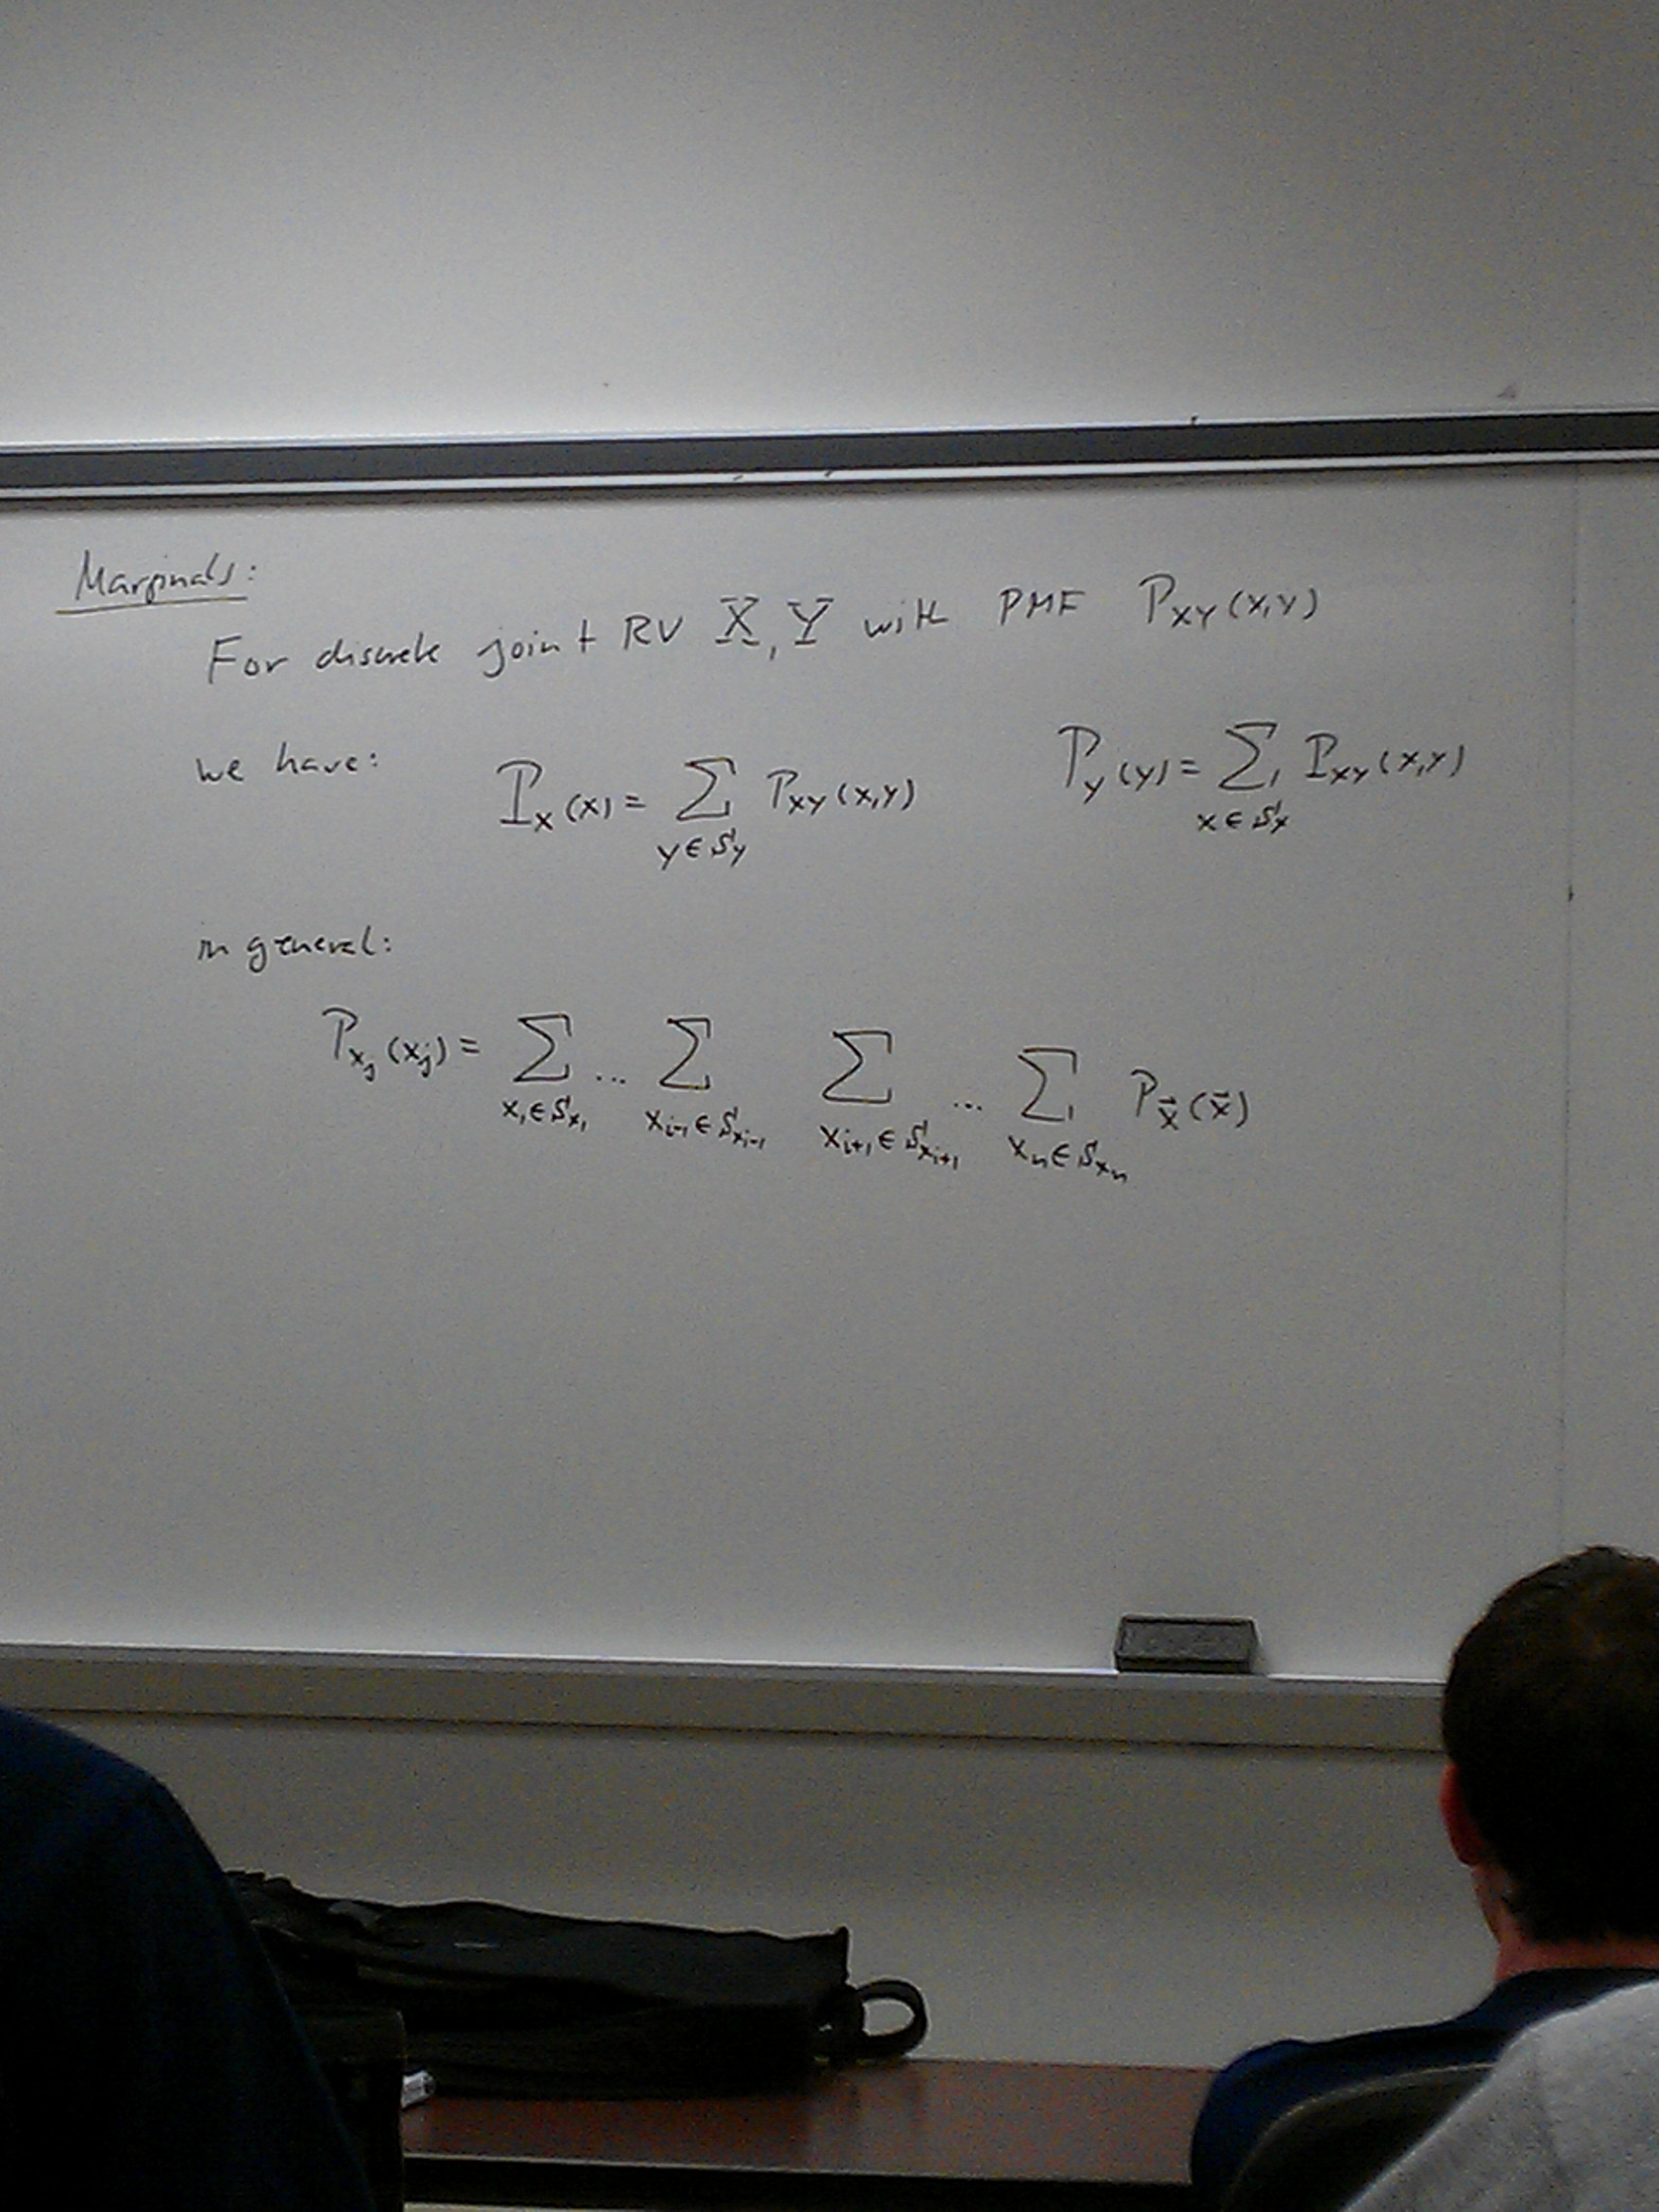 Marginals:
For discrete joint RV X, Y with PMF P_XY(x,y)
we have: P_X(x) = ∑_{y∈S_Y} P_XY(x,y) P_Y(y) = ∑_{x∈S_X} P_XY(x,y)
in general:
P_{X_j}(x_j) = ∑_{x_1∈S_{X_1}} ... ∑_{x_{i-1}∈S_{X_{i-1}}} ∑_{x_{i+1}∈S_{X_{i+1}}} ... ∑_{x_n∈S_{X_n}} P_{\vec{X}}(\vec{x})